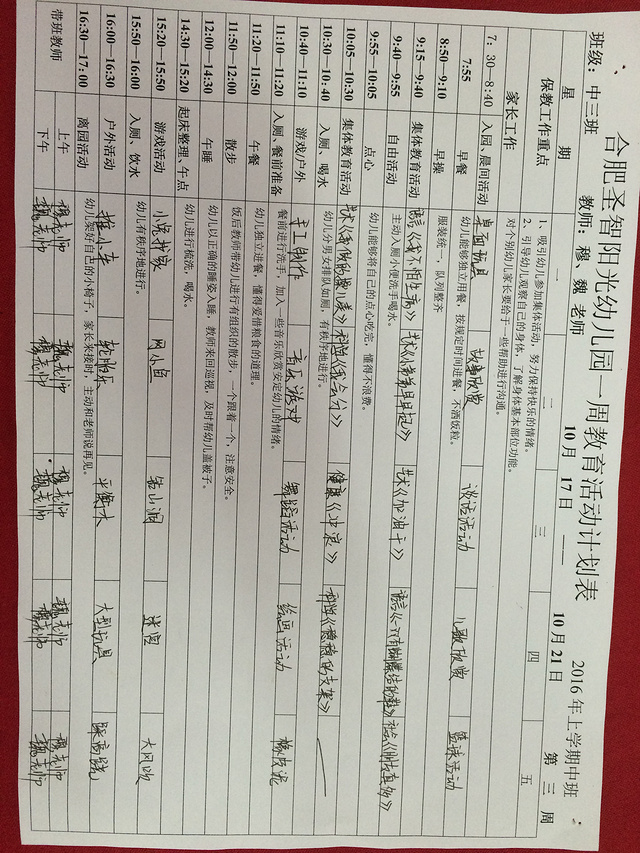 合肥圣智阳光幼儿园一周教育活动计划表
2016 年上学期中班
班级：中三班 教师：穆、魏 老师 10 月 17 日 —— 10 月 21 日 第 三 周
星 期 一 二 三 四 五
保教工作重点 1、吸引幼儿参加集体活动，努力保持快乐的情绪。
2、引导幼儿观察自己的身体，了解身体基本部位功能。
家长工作 对个别幼儿家长要给于一些帮助进行沟通。
7：30-8:40 入园/晨间活动 桌面玩具 故事欣赏 谈话活动 儿歌欣赏 篮球活动
7:55 早餐 幼儿能够独立用餐，按规定时间进餐，不洒饭粒。
8:50—9:10 早操 服装统一，队列整齐
9:15—9:40 集体教育活动 语言《我不怕生病》 艺术《春莉早起》 艺术《加油干》 语言《一只有蝴蝶结的鞋》 社会《朋友真多》
9:40—9:55 自由活动 主动入厕小便洗手喝水。
9:55—10:05 点心 幼儿能够将自己的点心吃完，懂得不浪费。
10:05—10:30 集体教育活动 科学《我会分》 健康《冲浪》 科学《稳稳的支架》
10:30—10:40 入厕、喝水 幼儿分男女排队如厕，有秩序地进行。
10:40—11:10 游戏/户外 手工制作 音乐游戏 舞蹈活动 绘画活动 橡皮泥
11:10—11:20 入厕、餐前准备 餐前进行洗手，加入一些音乐欣赏安定幼儿的情绪。
11:20—11:50 午餐 幼儿独立进餐，懂得爱惜粮食的道理。
11:50—12:00 散步 饭后教师带幼儿进行有组织的散步，一个跟着一个，注意安全。
12:00—14:30 午睡 幼儿以正确的睡姿入睡，教师来回巡视，及时帮幼儿盖被子。
14:30—15:20 起床整理、午点 幼儿进行梳洗，喝水。
15:20—15:50 游戏活动 小兔找家 网小鱼 钻山洞 迷宫 大风吹
15:50—16:00 入厕、饮水 幼儿有秩序地进行。
16:00—16:30 户外活动 推小车 轮胎乐 平衡木 大型玩具 踩高跷
16:30—17:00 离园活动 幼儿架好自己的小椅子，家长来接时，主动和老师说再见。
带班教师 上午 穆老师 魏老师 穆老师 魏老师 穆老师
下午 魏老师 穆老师 魏老师 穆老师 魏老师